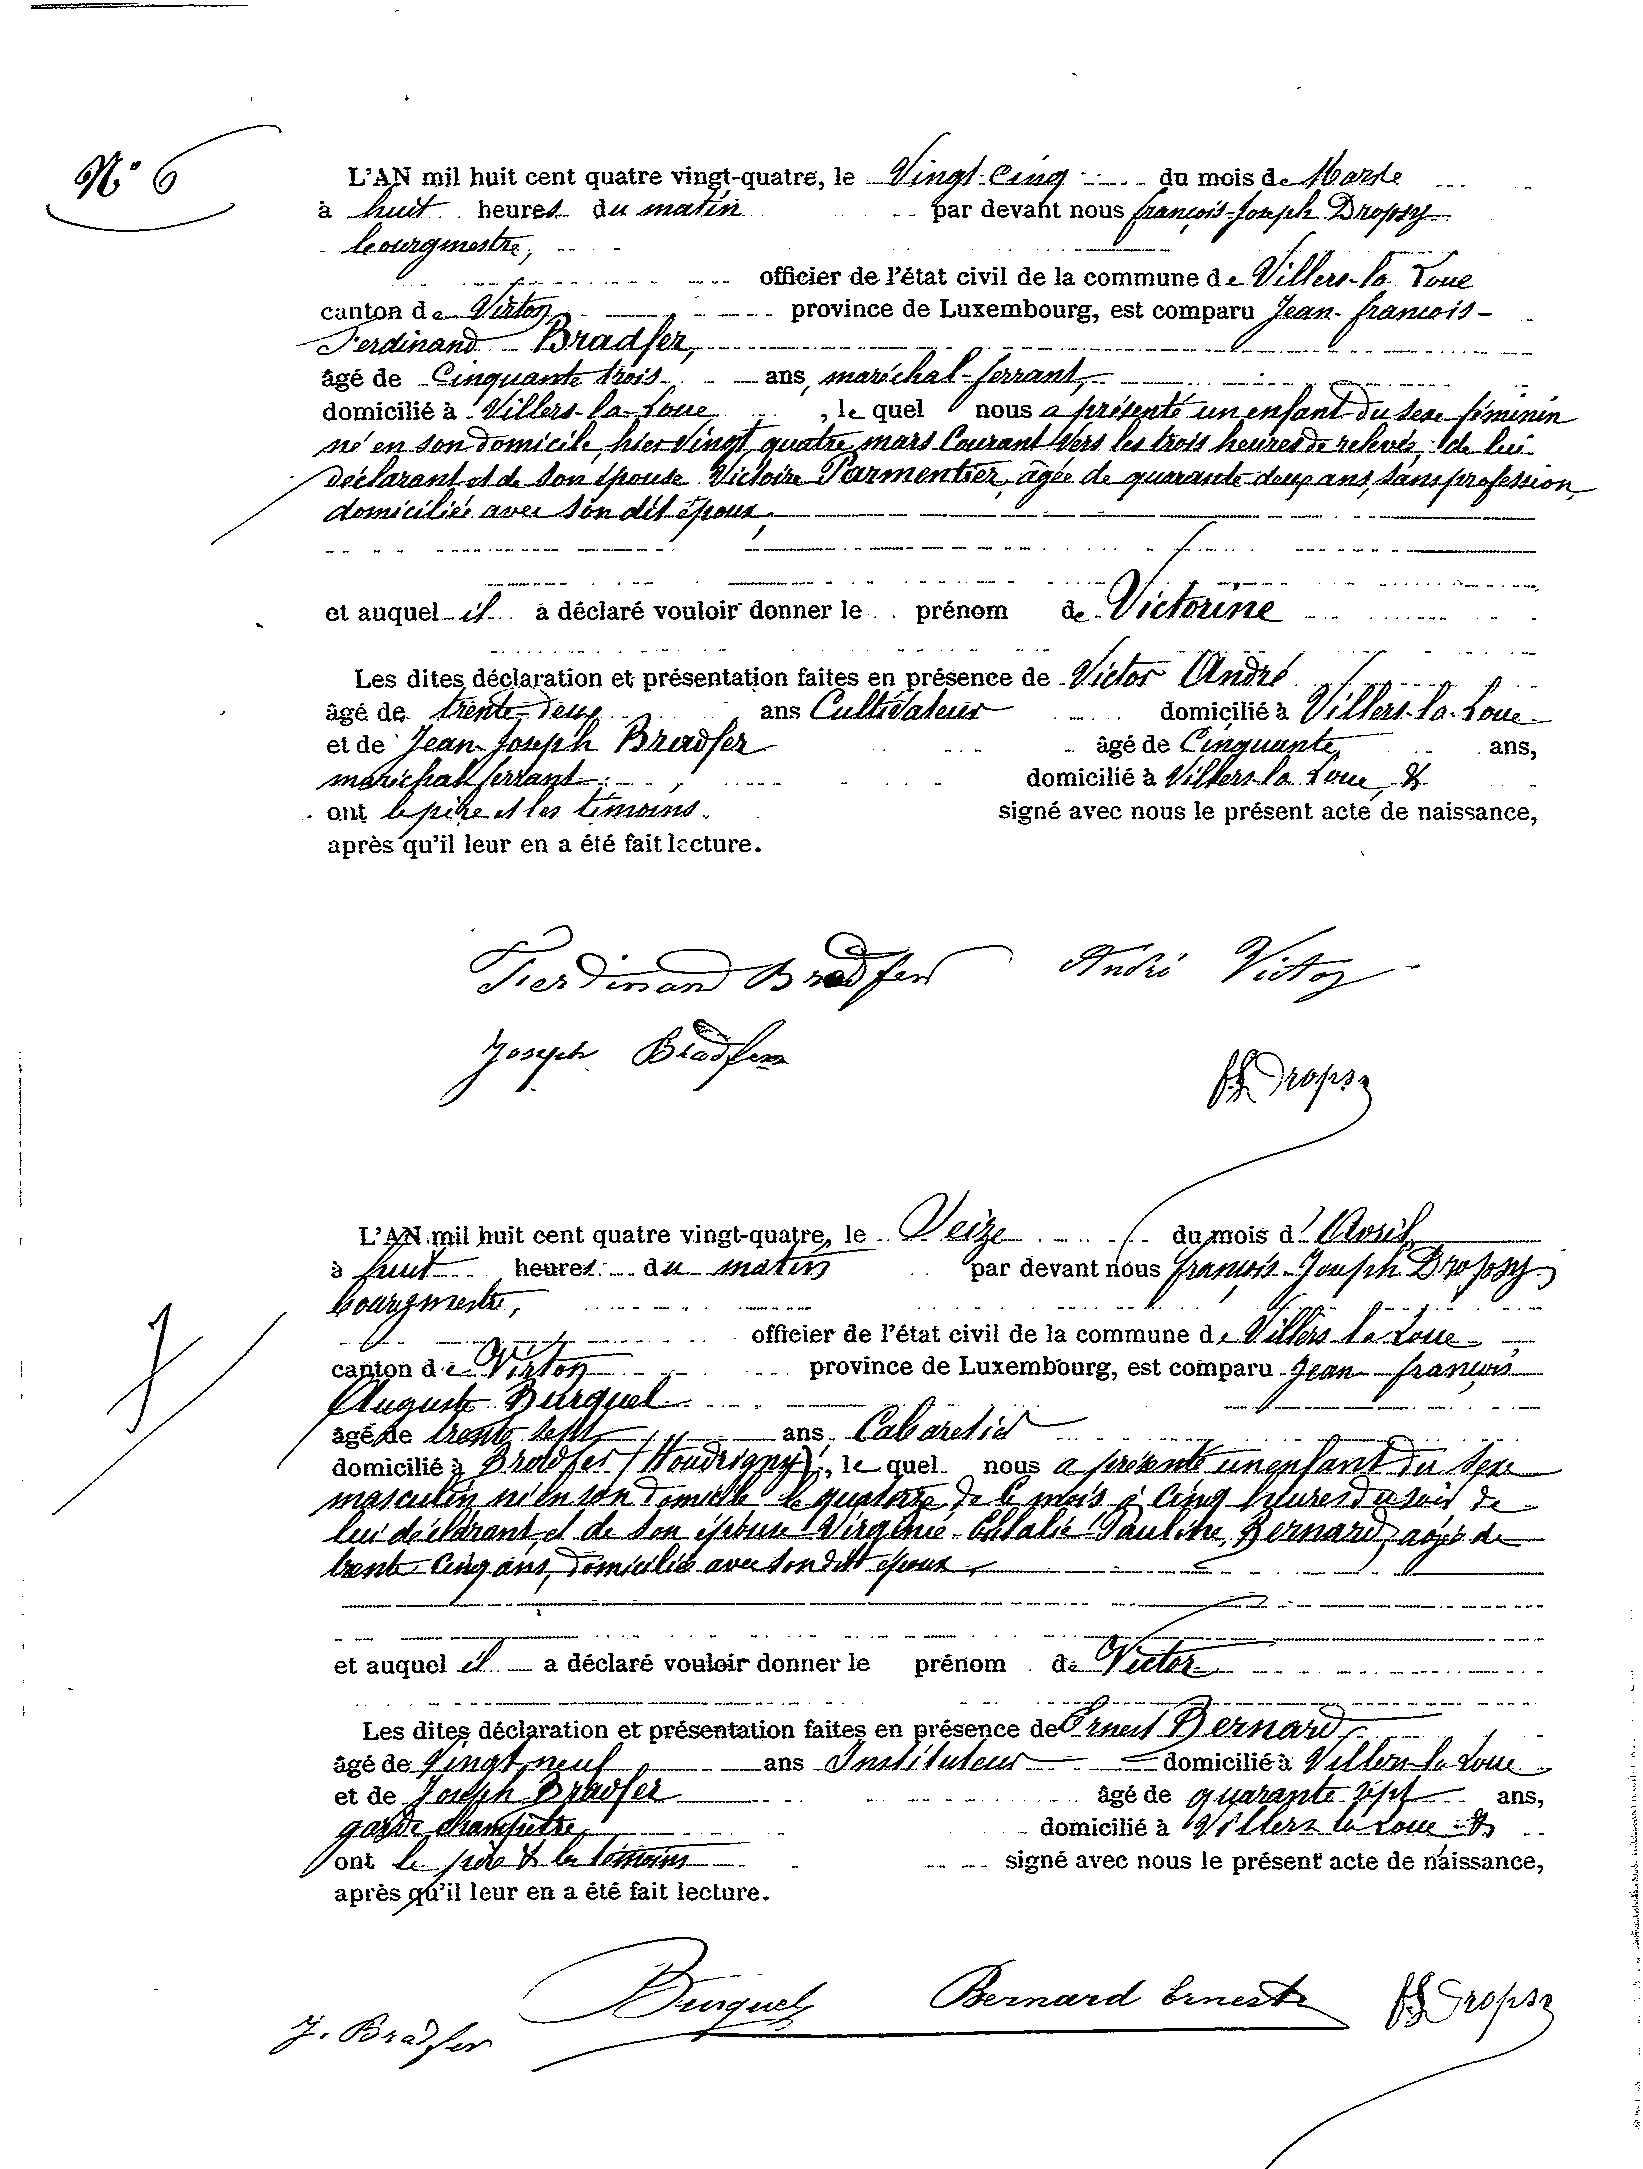 N° 6
L'AN mil huit cent quatre vingt-quatre, le Vingt-Cinq du mois de Mars
à huit heures du matin par devant nous françois-Joseph Dropsy
bourgmestre,
officier de l'état civil de la commune de Villers-la Loue
canton de Virton province de Luxembourg, est comparu Jean-francois-
Ferdinand Bradfer,
âgé de Cinquante trois ans, maréchal-ferrant,
domicilié à Villers-la-Loue, le quel nous a présenté un enfant du sexe féminin
né en son domicile, hier Vingt quatre mars Courant Vers les trois heures de relevée, de lui
déclarant et de son épouse Victoire Parmentier, âgée de quarante deux ans, sans profession,
domiciliée avec son dit époux,
et auquel il a déclaré vouloir donner le prénom de Victorine
Les dites déclaration et présentation faites en présence de Victor André
âgé de trente-deux ans Cultivateur domicilié à Villers-la-Loue
et de Jean-Joseph Bradfer âgé de Cinquante ans,
maréchal ferrant, domicilié à Villers-la Loue, &
ont le père et les témoins signé avec nous le présent acte de naissance,
après qu'il leur en a été fait lecture.
Ferdinand Bradfer André Victor
Joseph Bradfer
fJ Dropsy
L'AN mil huit cent quatre vingt-quatre, le Seize du mois d'Avril
à huit heures du matin par devant nous françois-Joseph Dropsy
bourgmestre,
officier de l'état civil de la commune de Villers-la Loue
7
canton de Virton province de Luxembourg, est comparu Jean-françois
Auguste Burquel
âgé de trente sept ans, Cabaretier
domicilié à Bradfer (Houdrigny), le quel nous a présenté un enfant du sexe
masculin né en son domicile le quatorze de ce mois à cinq heures du soir de
lui déclarant et de son épouse Virginie Eulalie Pauline Bernard, agée de
trente-cinq ans, domiciliée avec son dit époux,
et auquel il a déclaré vouloir donner le prénom de Victor
Les dites déclaration et présentation faites en présence de Ernest Bernard
âgé de Vingt neuf ans Instituteur domicilié à Villers-la Loue
et de Joseph Bradfer âgé de quarante sept ans,
garde champêtre domicilié à Villers la Loue &
ont le père & les témoins signé avec nous le présent acte de naissance,
après qu'il leur en a été fait lecture.
J. Bradfer Burquel Bernard Erneste fJ Dropsy